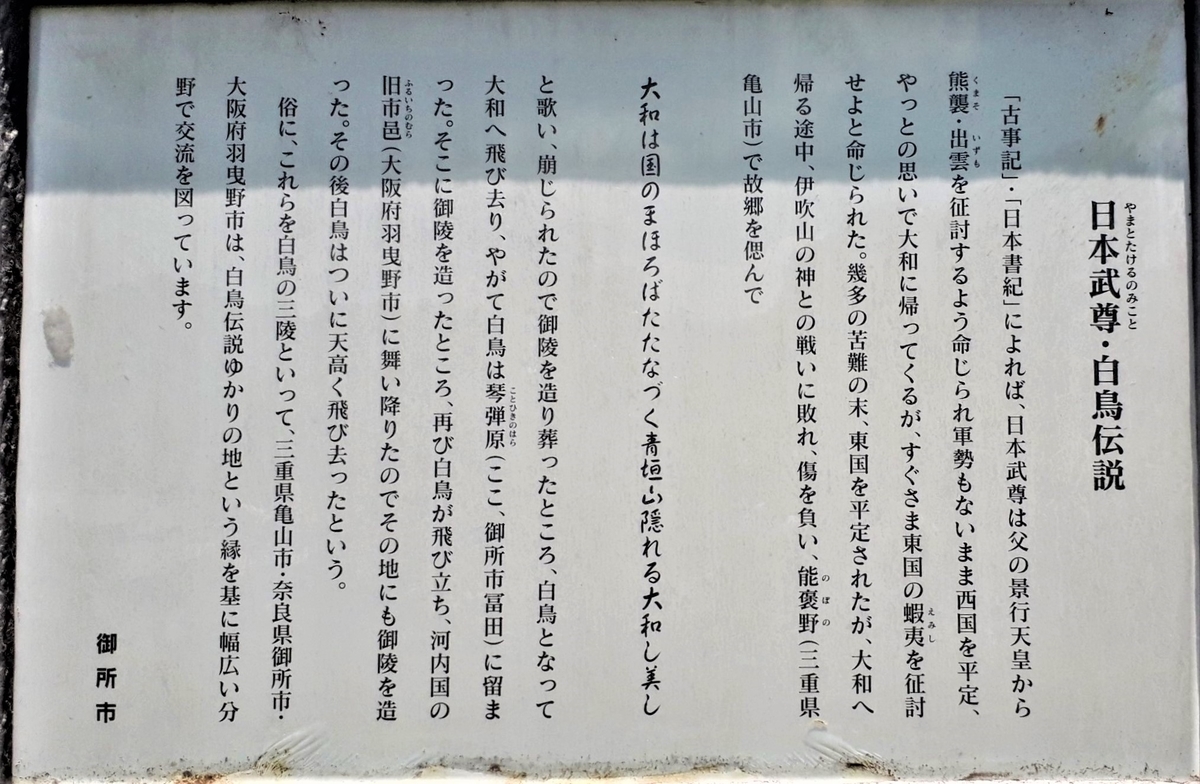 日本武尊・白鳥伝説
やまとたけるのみこと
「古事記」・「日本書紀」によれば、日本武尊は父の景行天皇から
熊襲・出雲を征討するよう命じられ軍勢もないまま西国を平定、
くまそ いずも
やっとの思いで大和に帰ってくるが、すぐさま東国の蝦夷を征討
えみし
せよと命じられた。幾多の苦難の末、東国を平定されたが、大和へ
帰る途中、伊吹山の神との戦いに敗れ、傷を負い、能褒野(三重県
のぼの
亀山市)で故郷を偲んで
大和は国のまほろばたたなづく青垣山隠れる大和し美し
と歌い、崩じられたので御陵を造り葬ったところ、白鳥となって
大和へ飛び去り、やがて白鳥は琴弾原(ここ、御所市冨田)に留ま
ことひきのはら
った。そこに御陵を造ったところ、再び白鳥が飛び立ち、河内国の
旧市邑(大阪府羽曳野市)に舞い降りたのでその地にも御陵を造
ふるいちのむら
った。その後白鳥はついに天高く飛び去ったという。
俗に、これらを白鳥の三陵といって、三重県亀山市・奈良県御所市・
大阪府羽曳野市は、白鳥伝説ゆかりの地という縁を基に幅広い分
野で交流を図っています。
御所市